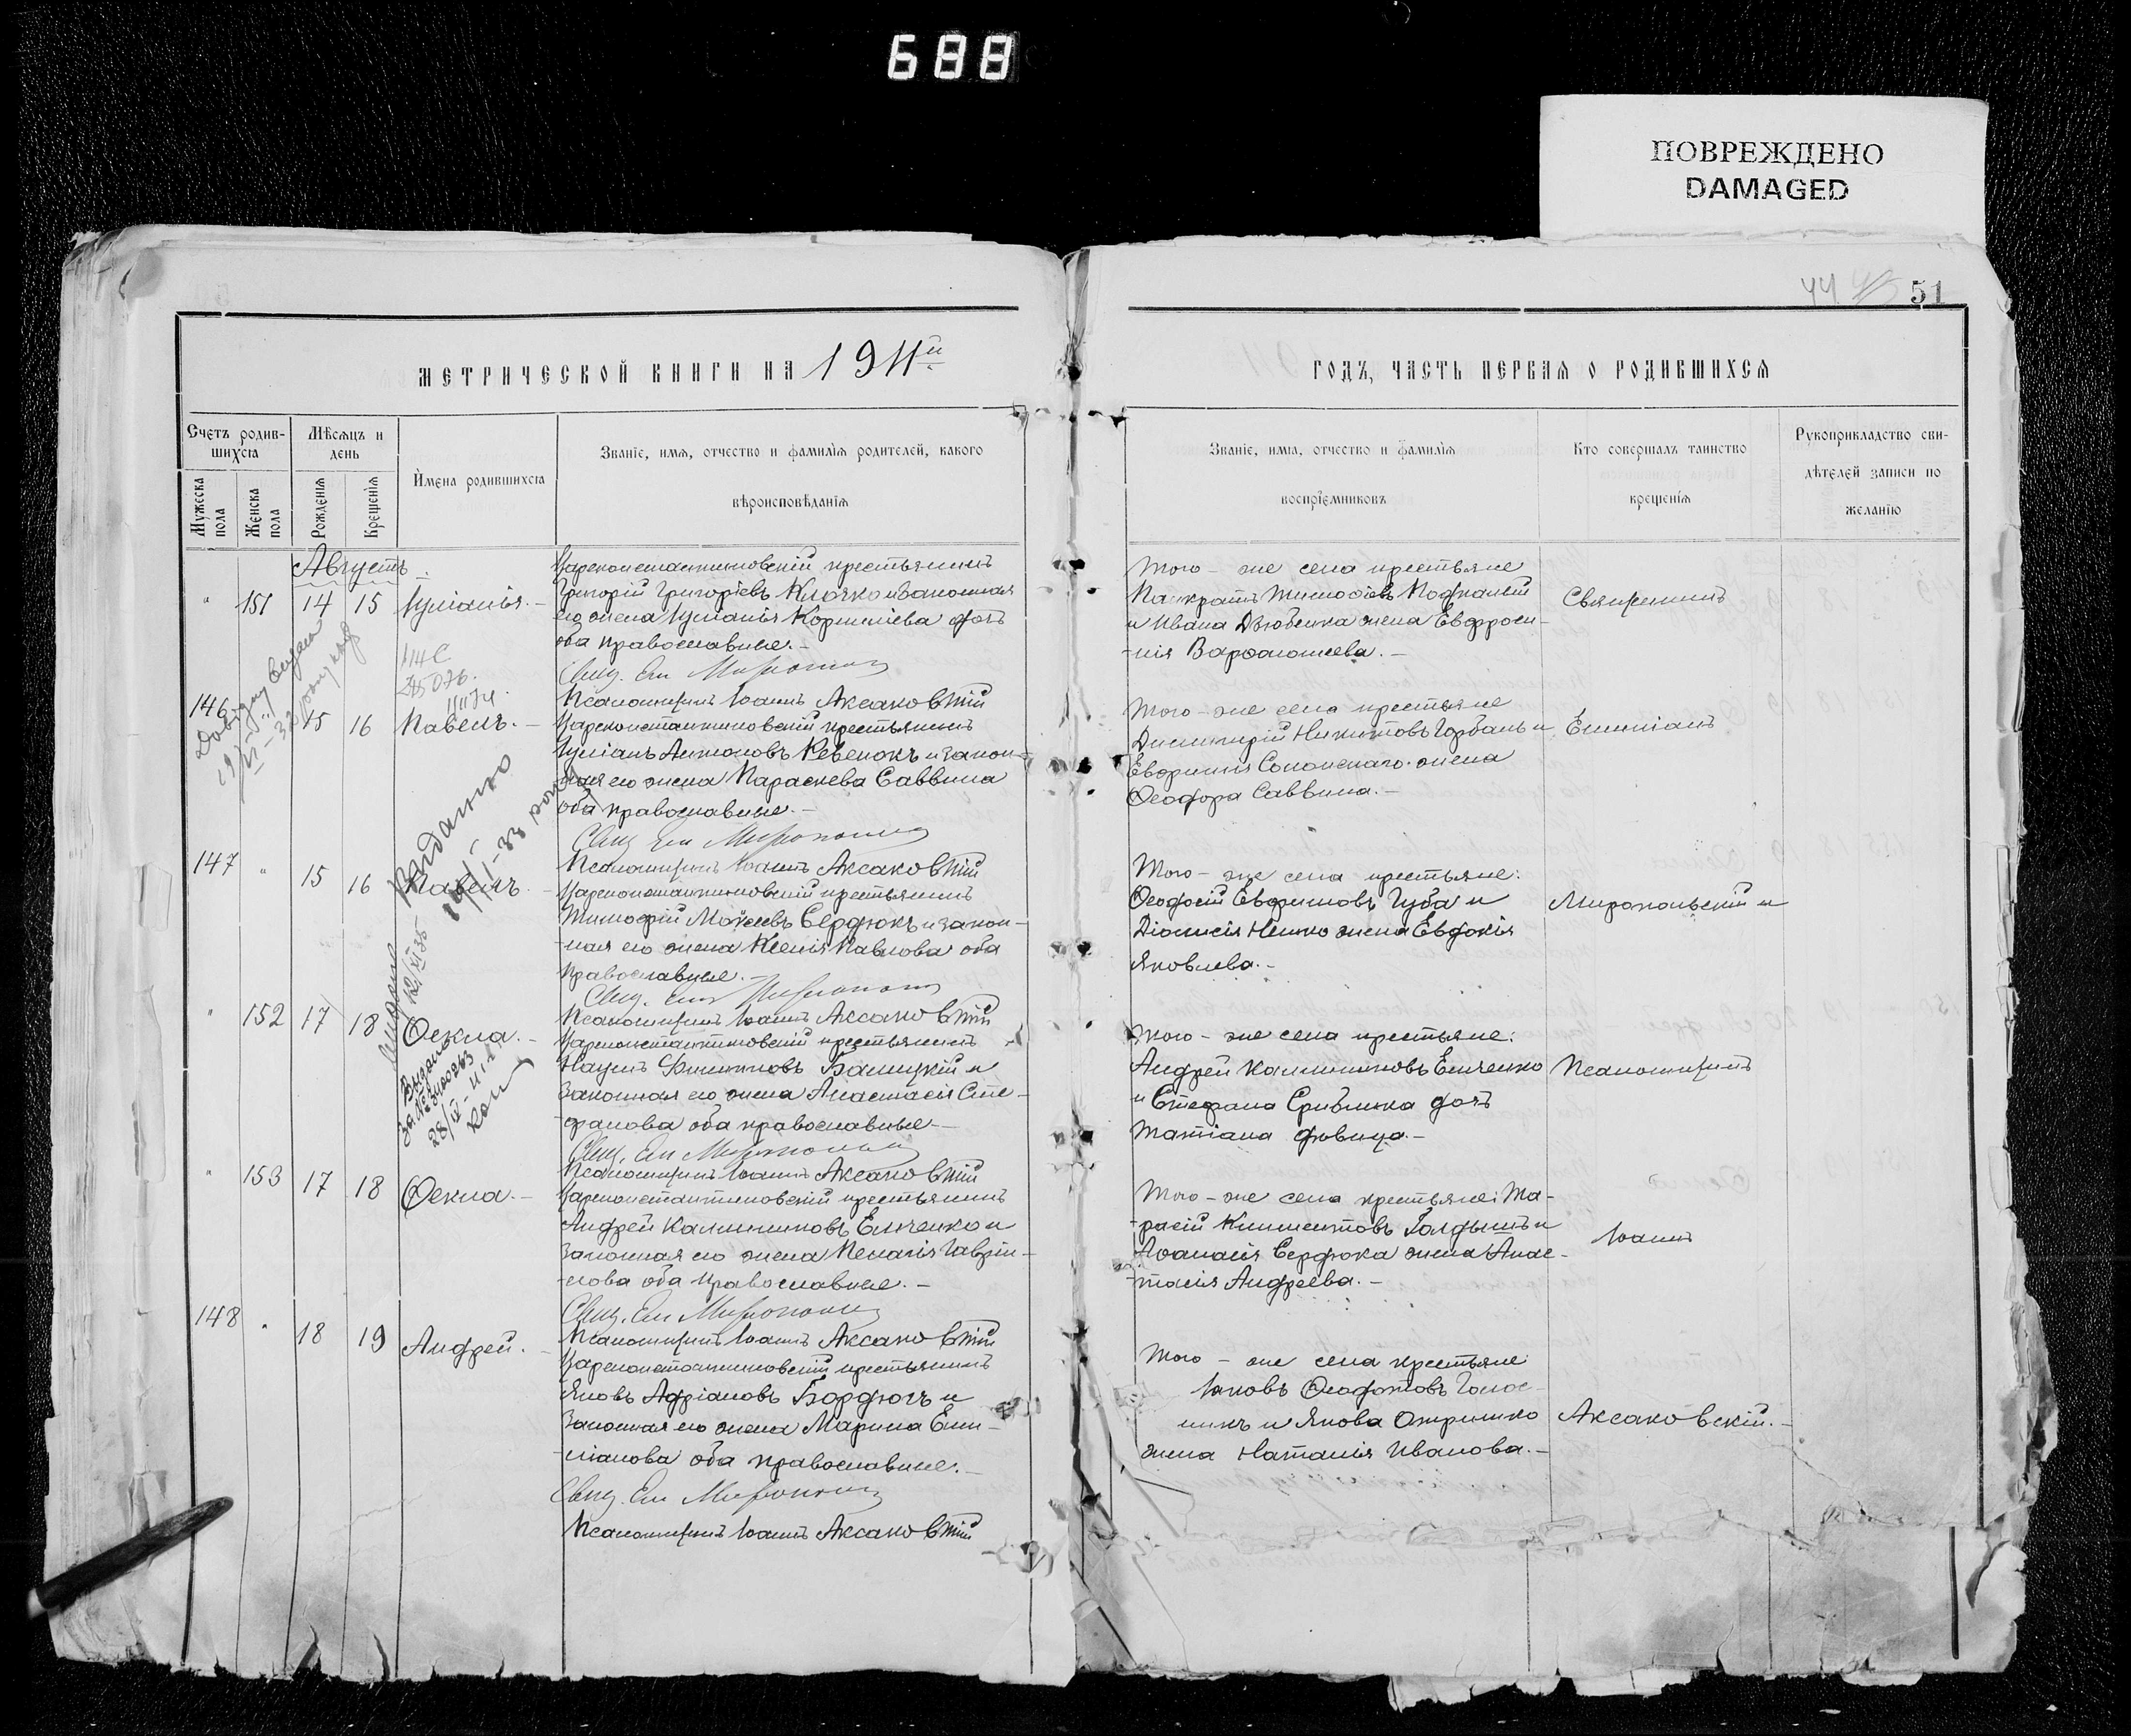 688
ПОВРЕЖДЕНО
DAMAGED
51
МЕТРИЧЕСКОЙ КНИГИ НА 1911й
ГОДЪ, ЧАСТЬ ПЕРВАЯ О РОДИВШИХСЯ
Счетъ родив-
шихся
Мужеска пола
Женска пола
Мѣсяцъ и
день
Рожденія
Крещенія
Имена родившихся
Званіе, имя, отчество и фамилія родителей, какого
вѣроисповѣданія
Званіе, имя, отчество и фамилія
воспріемниковъ
Кто совершалъ таинство
крещенія
Рукоприкладство сви-
дѣтелей записи по
желанію
Августъ
" 151 14 15 Іуліанія.
Цареконстантиновскій крестьянинъ
Григорій Григоріевъ Клочко и законная
его жена Іуліанія Корниліева
оба православные.
Свящ. Ем. Миропольскій
Псаломщикъ Іоаннъ Аксаковскій
Того-же села крестьяне
Панкратъ Тимофіевъ
и Ивана Дзюбенка жена Евфроси-
-нія Варфоломеева.
Священникъ
146 " 15 16 Павелъ.
Цареконстантиновскій крестьянинъ
Іуліанъ Антоновъ Ревенокъ и закон-
ная его жена Параскева Саввина
оба православные.
Свящ. Ем. Миропольскій
Псаломщикъ Іоаннъ Аксаковскій
Того-же села крестьяне
Димитрій Никитовъ Горбань и
Евфимія Соколенаго жена
Ѳеодора Саввина.
Емиліанъ
147 " 15 16 Павелъ
Цареконстантиновскій крестьянинъ
Тимофій Моисеевъ Сердюкъ и закон-
-ная его жена Ксенія Павлова оба
православные.
Свящ. Ем. Миропольскій
Псаломщикъ Іоаннъ Аксаковскій
Того-же села крестьяне:
Ѳеодосій Евфимовъ Губа и
Діонисія Нешко жена Евдокія
Яковлева.
Миропольскій и
" 152 17 18 Ѳекла.
Цареконстантиновскій крестьянинъ
Наумъ Филипповъ Балицкій и
законная его жена Анастасія Сте-
-фанова оба православные.
Свящ. Ем. Миропольскій
Псаломщикъ Іоаннъ Аксаковскій
Того-же села крестьяне:
Андрей Каллиниковъ Емченко
и Стефана дочь
Татіана дѣвица.
Псаломщикъ
" 153 17 18 Ѳекла.
Цареконстантиновскій крестьянинъ
Андрей Каллиниковъ Емченко и
законная его жена Пелагія Гаврии-
-лова оба православные.
Свящ. Ем. Миропольскій
Псаломщикъ Іоаннъ Аксаковскій
Того-же села крестьяне: Та-
-расій Климентовъ и
Аѳанасія Сердюка жена Анас-
-тасія Андреева.
Іоаннъ
148 " 18 19 Андрей.
Цареконстантиновскій крестьянинъ
Яковъ Адріановъ Бордюгъ и
законная его жена Марина Еми-
-ліанова оба православные.
Свящ. Ем. Миропольскій
Псаломщикъ Іоаннъ Аксаковскій
Того-же села крестьяне
Іаковъ Ѳеодотовъ
и Якова Отришко
жена Наталія Иванова.
Аксаковскій.